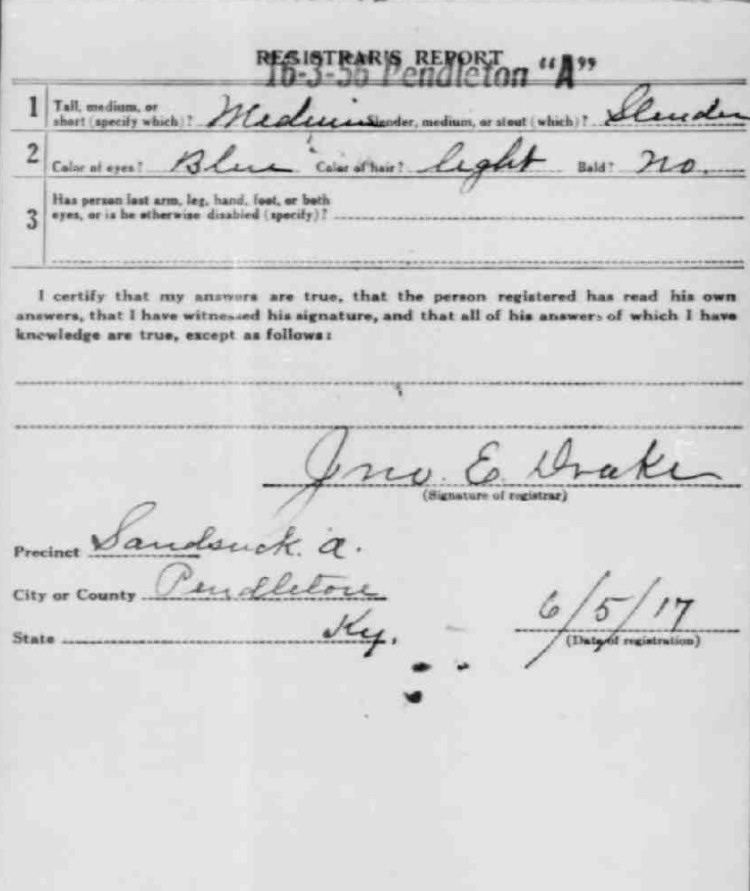 REGISTRAR'S REPORT
16-3-56 Pendleton "A"
1 Tall, medium, or short (specify which)? Medium Slender, medium, or stout (which)? Slender
2 Color of eyes? Blue Color of hair? light Bald? no.
3 Has person lost arm, leg, hand, foot, or both
eyes, or is he otherwise disabled (specify)?
I certify that my answers are true, that the person registered has read his own
answers, that I have witnessed his signature, and that all of his answers of which I have
knowledge are true, except as follows:
Jno. E. Drake
(Signature of registrar)
Precinct Sandsuck. a.
City or County Pendleton
State Ky. 6/5/17
(Date of registration)